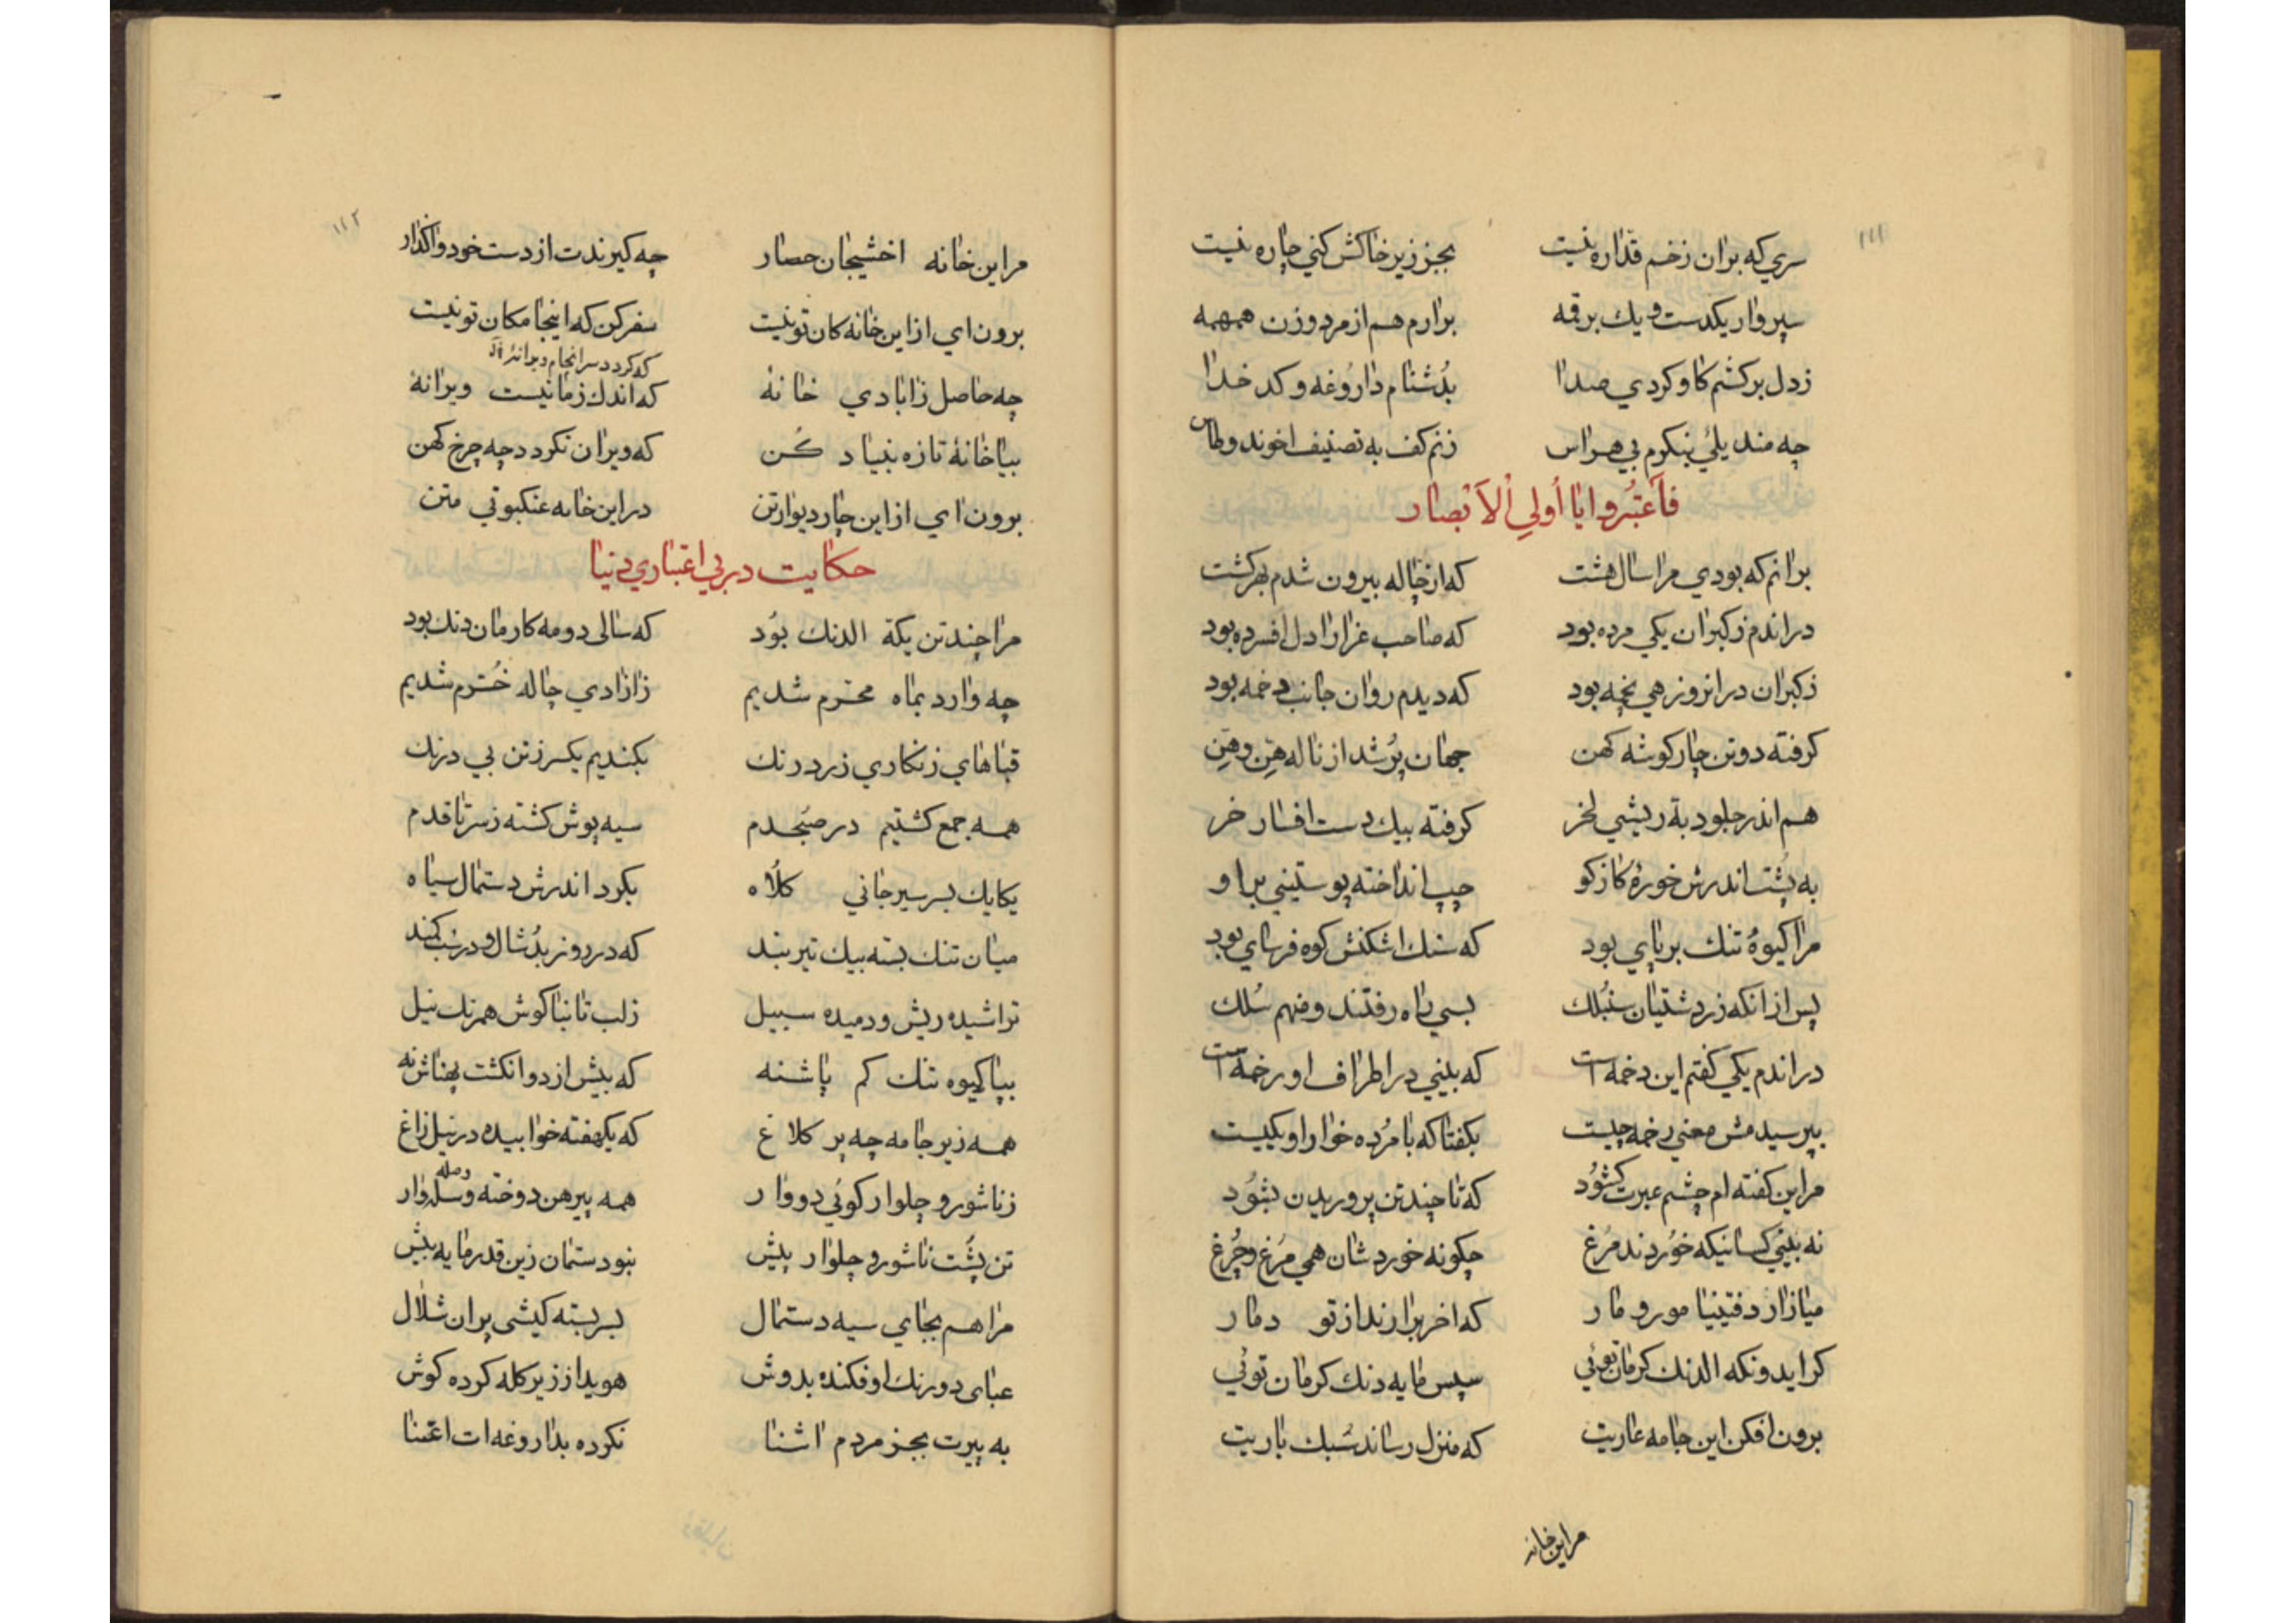 ۱۱۱
سري که بران زخم قداره نیست بجز زیر خاکش کني چاره نیست
سپروار یکدست و یك برقمه برارم هم از مرد و زن همهمه
زدل برکشم کاوکردي صدا بدُشنام داروُغه و کدخدا
چه مندیلئي بنکرم بي هراس زنم کف به تصنیف اخوند وطاس
فَاَعتَبُروا یٰا اُولِي اْلاَبْصٰار
برانم که بودي مرا سال هشت که از چاله بیرون شدم بهر کشت
دراندم زکبران یکي مرده بود که صاحب عزارا دل افسرده بود
زکبران درانروز هي نخِه بود که دیدم روان جانب دخمه بود
کرفته دوتن چارکوشه کهن جهان پُر شد از ناله هِن و هِن
هم اندر جلود بهٔ ریشي لخر کرفته بیك دست افسار خر
به پُشت اندرش خورهٔ کازکو چپ انداخته پوستیني براو
مرا کیوهٔ تنك برپاي بود که سنك اشکنش کوه فرساي بود
پس ازانکه زردشتیان سنُبلك بسي راه رفتند ومنهم سُلك
دراندم یکي کفتم این دخمه است که بیني در اطراف او رخمه است
بپرسیدمش معني رخمه چیست بکفتا که با مُرده خوار او یکیست
مراین کفته ام چشم عبرت کشوُد که تا چند تن پروریدن بشوُد
نه بیني کسانیکه خوُردند مُرغ چکونه خوردشان همي مُرغ وچُرغ
میازار دفتینیا مور و مار که اخر برارند ازتو دمار
کراید ونکه الدنك کرمان توئي سپس مایه دنك کرمان توئي
برون افکن این جامه عاریت که منزل رساند سُبك باریت
مراین خانه
۱۱۲
مراین خانه اخشیجان حصار چه کیرندت از دست خود واکذار
برون اي ازاین خانه کان تونیست سفر کن که اینجا مکان تونیست
که کردد سرانجام ویرانهٔ
چه حاصل زابادي خانهٔ که اندك زمانیست ویرانهٔ
بیا خانهٔ تازه بنیاد کُن که ویران نکردد چه چرخ کهن
برون اي ازاین چار دیوار تن دراین خانه عنکبوتي متن
حکایت در بي اعتباري دنیا
مرا چند تن یکهٔ الدنك بوُد که سالی دومه کارمان دنك بود
چه وارد بماه محرم شدیم زازادي چاله خُرم شدیم
قباهاي زنکاري زرد رنك بکندیم یکسر زتن بي درنك
همه جمع کشتیم در صبُحدم سیه پوش کشته زسرتا قدم
یکایك بسر سیرجاني کلاه بکرد اندرش دستمال سیاه
میان تنك بسته بیك تیربند که در روز بدُشال ودرشب کمند
تراشیده ریش ودمیده سبیل زلب تا بناکوش همرنك نیل
بپا کیوه تنك کم پاشنه که بیش از دوانکشت پهناش نه
همه زیرجامه چه پر کلاغ که یکهفته خوابیده در نیل زاغ
زناشور و چلوار کوئي دووار همه پیرهن دوخته وسله وار
وصله
تن پُشت ناشور و چلوار پیش نبود ستمان زین قدر مایه بیش
مرا هم بجاي سیه دستمال بسر بسته کیشی بران شلال
عبای دورنك اوفکنده بدوش هویدا از زیر کله کرده کوش
به پیرت بجز مردم اشنا نکرده بداروغه ات اعتنا